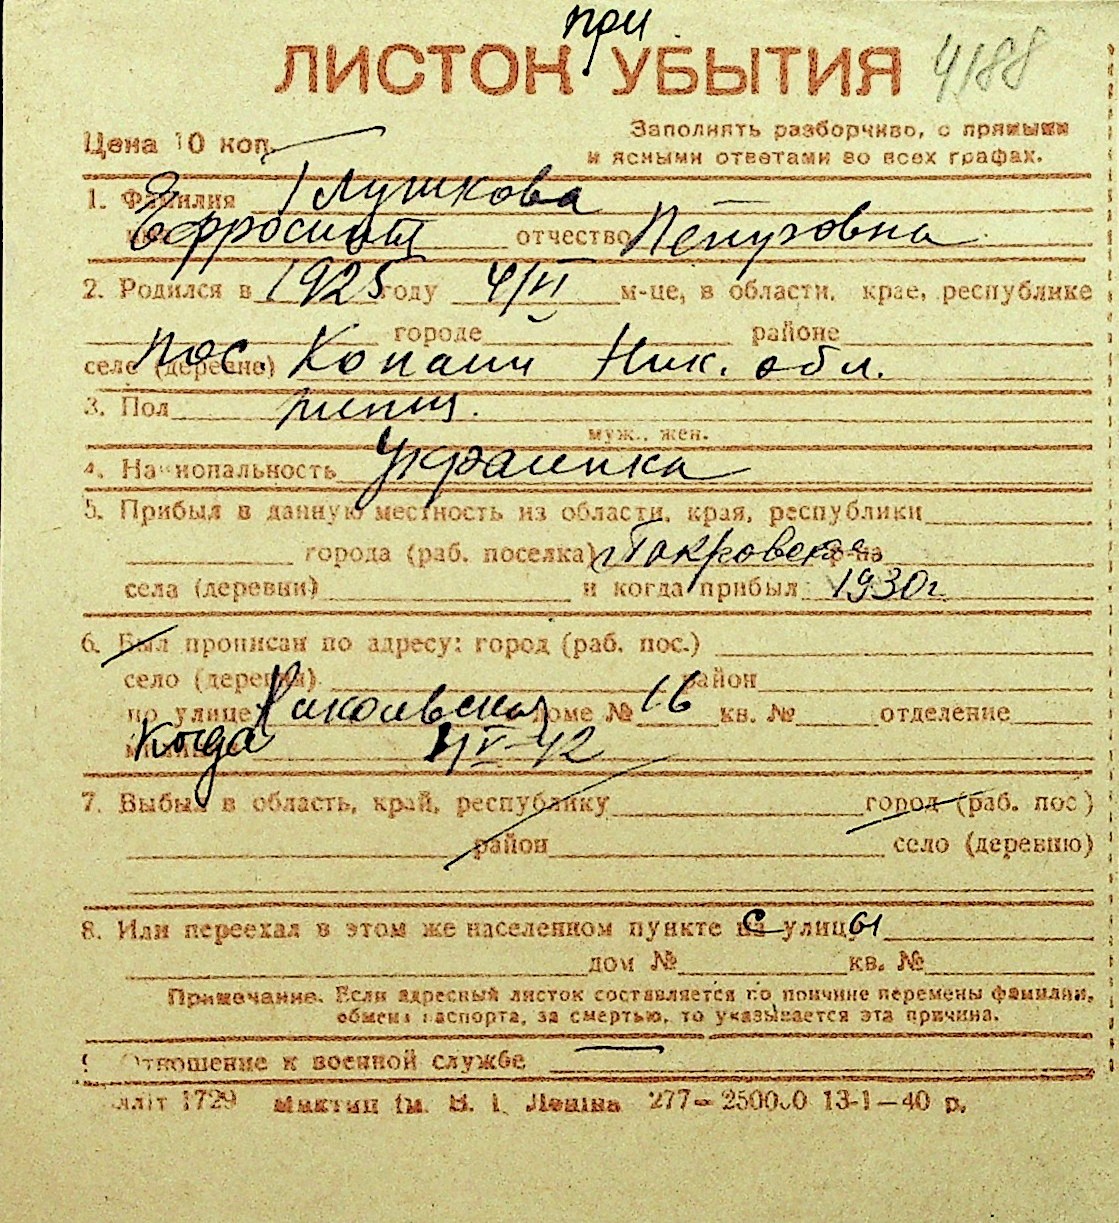 при
ЛИСТОК УБЫТИЯ 4188
Цена 10 коп. Заполнять разборчиво, с прямыми
и ясными ответами во всех графах.
1. Фамилия Глушкова
имя отчество Петровна
2. Родился в 1925 году 4/VI м-це, в области, крае, республике
городе районе
селе (деревне) пос. Копани Ник. обл.
3. Пол женщ.
муж., жен.
4. Национальность Украинка
5. Прибыл в данную местность из области, края, республики
города (раб. поселка) Покровская р-на
села (деревни) и когда прибыл 1930г
6. Был прописан по адресу: город (раб. пос.)
село (деревня) район
по улице доме № 16 кв. № отделение
Когда
7. Выбыл в область, край, республику город (раб. пос.)
район село (деревню)
8. Или переехал в этом же населенном пункте с улицы
дом № кв. №
Примечание. Если адресный листок составляется по причине перемены фамилии,
обмена паспорта, за смертью, то указывается эта причина.
9. Отношение к военной службе
1729 277—250000 13-1—40 р.